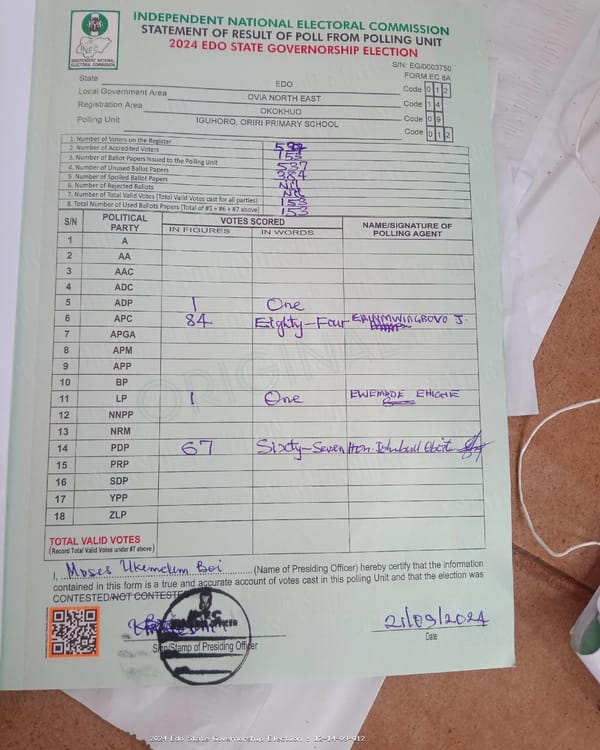 INDEPENDENT NATIONAL ELECTORAL COMMISSION
STATEMENT OF RESULT OF POLL FROM POLLING UNIT
2024 EDO STATE GOVERNORSHIP ELECTION
INDEPENDENT NATIONAL ELECTORAL COMMISSION
S/N: EG/0003750
FORM EC 8A
State EDO Code 0 1 2
Local Government Area OVIA NORTH EAST Code 1 4
Registration Area OKOKHUO Code 0 9
Polling Unit IGUHORO, ORIRI PRIMARY SCHOOL Code 0 1 2
1. Number of Voters on the Register
2. Number of Accredited Voters 153
3. Number of Ballot Papers Issued to the Polling Unit 537
4. Number of Unused Ballot Papers 384
5. Number of Spoiled Ballot Papers Nil
6. Number of Rejected Ballots Nil
7. Number of Total Valid Votes (Total Valid Votes cast for all parties) 153
8. Total Number of Used Ballots Papers (Total of #5 + #6 + #7 above) 153
S/N POLITICAL PARTY VOTES SCORED NAME/SIGNATURE OF POLLING AGENT
IN FIGURES IN WORDS
1 A
2 AA
3 AAC
4 ADC
5 ADP 1 One
6 APC 84 Eighty-Four
7 APGA
8 APM
9 APP
10 BP
11 LP 1 One EWEMADE
12 NNPP
13 NRM
14 PDP 67 Sixty-Seven Hon.
15 PRP
16 SDP
17 YPP
18 ZLP
ORIGINAL
TOTAL VALID VOTES
(Record Total Valid Votes under #7 above)
I, Moses Ukemelum Boi (Name of Presiding Officer) hereby certify that the information
contained in this form is a true and accurate account of votes cast in this polling Unit and that the election was
CONTESTED/NOT CONTESTED
21/09/2024
Sign/Stamp of Presiding Officer Date
2024 Edo State Governorship Election : 12-14-09-012